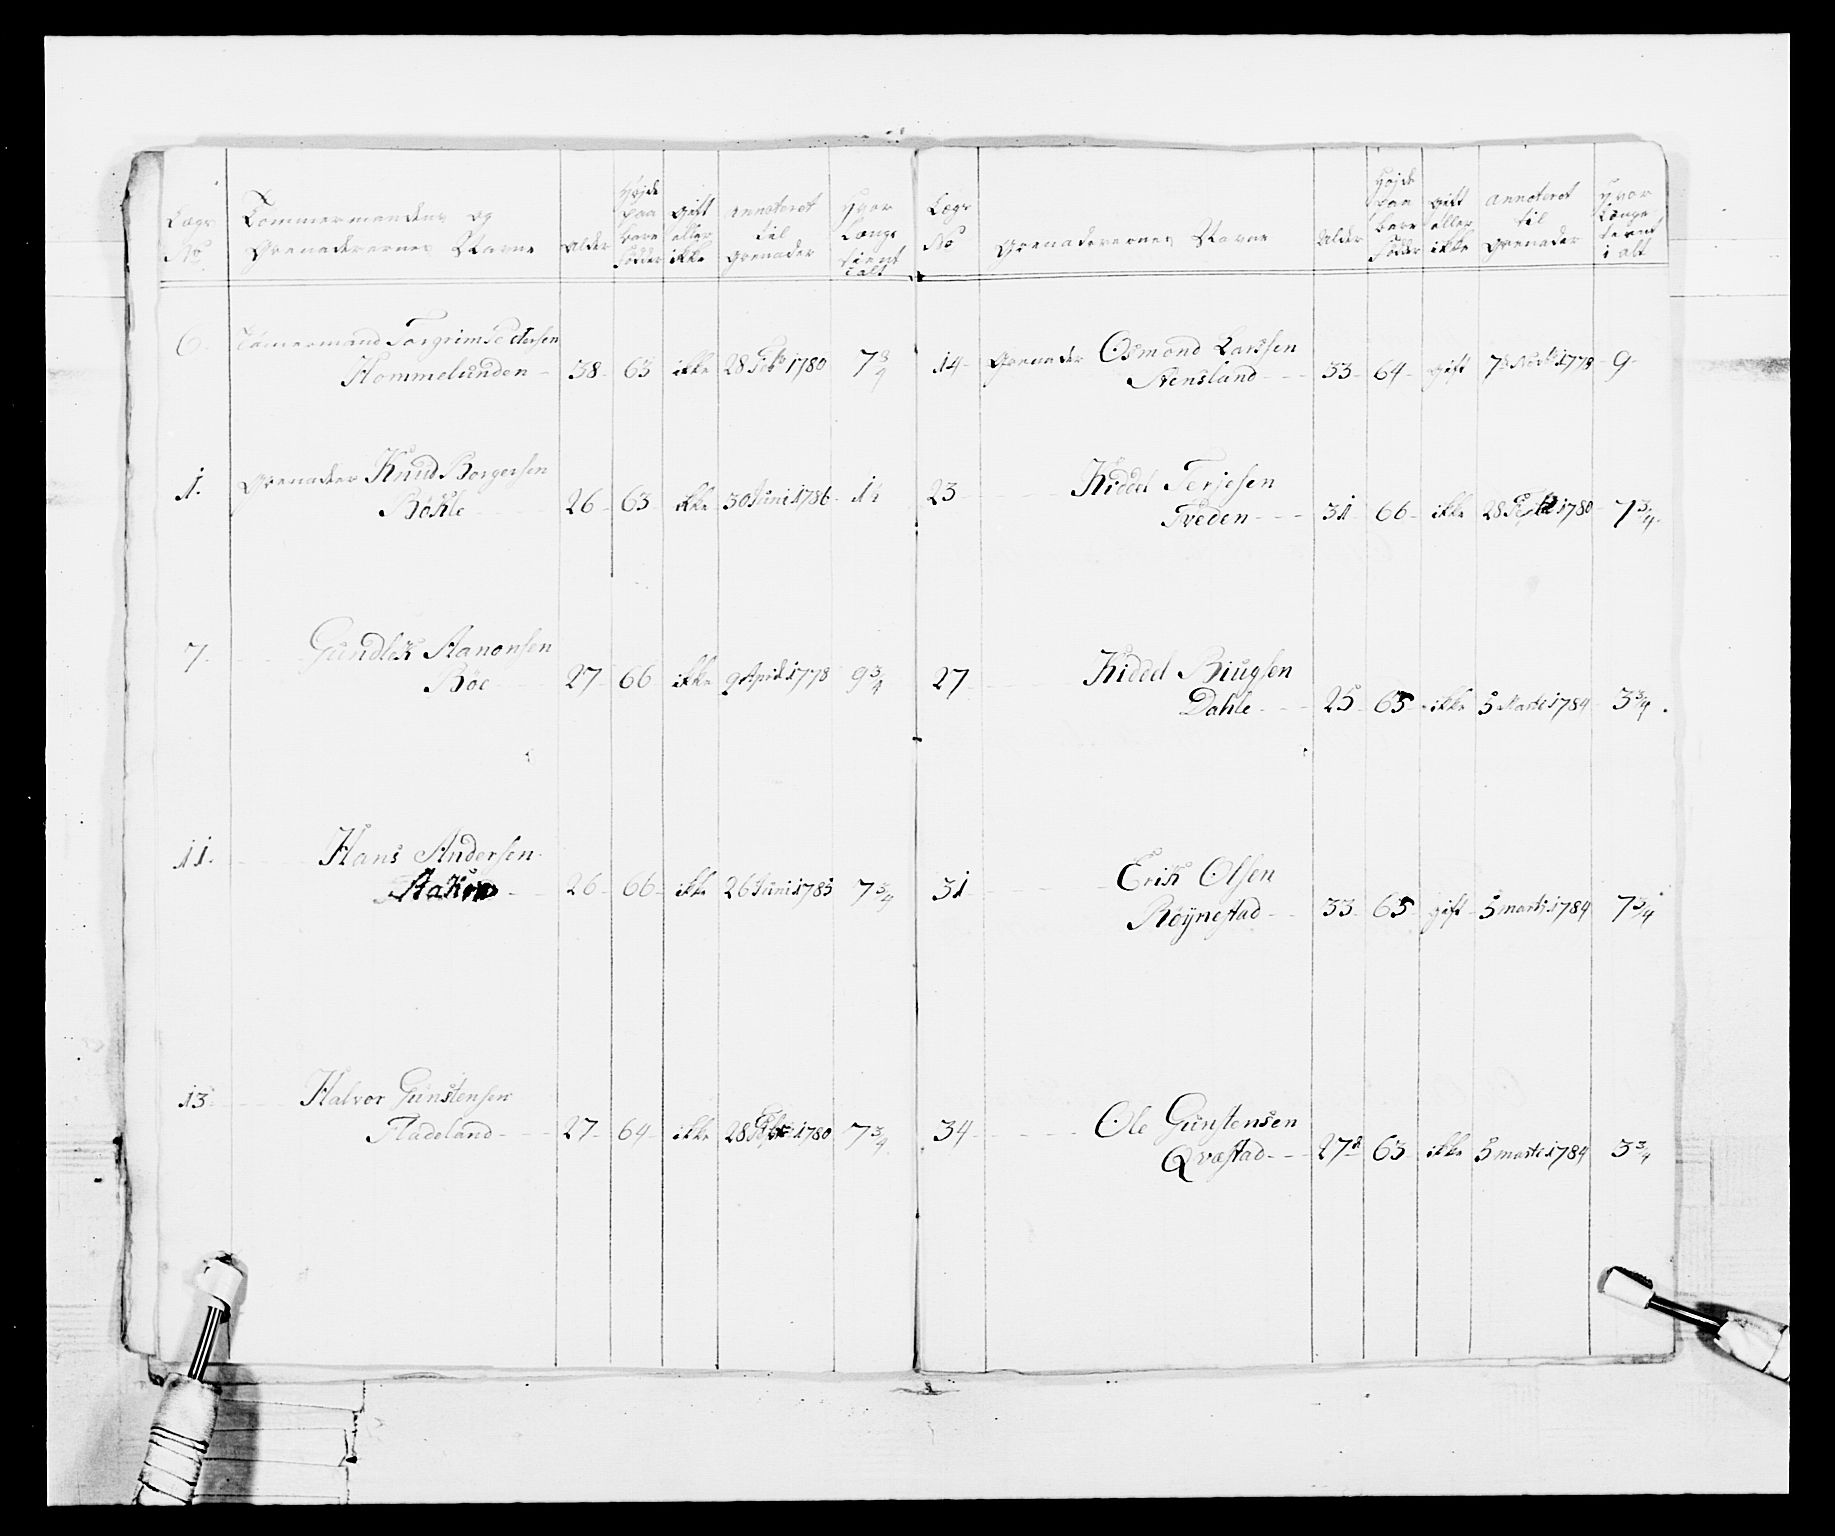 Lægs No
Tommermandens og Grenaderernes Navne
Alder
Højde paa bare Fødder
gift eller ikke
Annoteret til Grenader
Hvor Længe tient i alt
6. Tømermand Torgrim Pedersen
Hommelunden - 38 - 63 ikke 28 Feb 1780 7 3/4
1. Grenader Knud Borgersen
Böhle - 26 - 63 ikke 30 Juni 1786
7. Gundlek Aanonsen
Böe 27 66 ikke 9 April 1778 9 3/4
11. Hans Andersen
26 - 66 - ikke 26 Juni 1785 7 3/4
13. Halvor Gunstensen
Fladeland - 27 - 64 - ikke 28 Feb 1780 7 3/4
Lægs No
Grenaderernes Navne
Alder
Højde paa bare Fødder
gift eller ikke
Annoteret til Grenader
Hvor Længe tient i alt
14 - Grenader Osmond Larssen
Stensland - 33 - 64 - gift 1778 - 9 -
23 Kiddel Terjesen
Tveden - 31 - 66 - ikke 28 1780 - 7 3/4
27 Kiddel Biugsen
Dahle - 25 - 65 - ikke 5 Marti 1784 3 3/4
31 Erik Olsen
Röÿnestad - 33 - 65 gift - 5 marti 1784 7 3/4
34 Ole Gunstensen
Qvæstad - 27 63 ikke 5 marti 1784 3 3/4